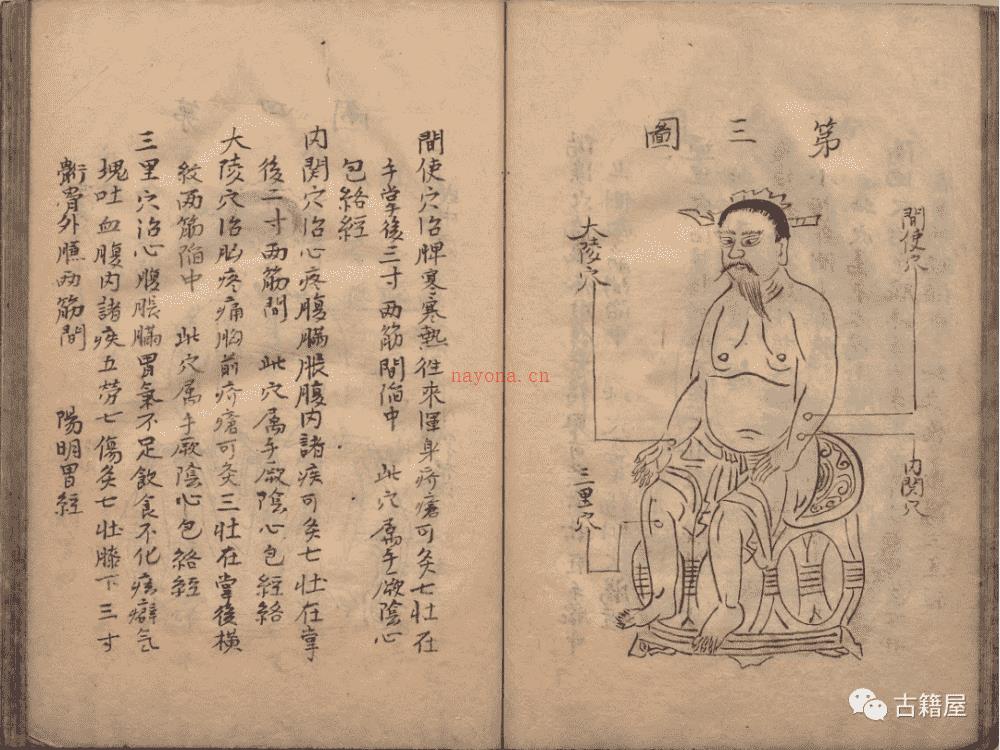 第三圖
間使穴
大陵穴
內関穴
三里穴
間使穴治脾寒寒熱徃來渾身疥瘡可灸七壮在
手掌後三寸两筋間陷中 此穴属手厥陰心
包絡經
内関穴治心疼腹瞞脹腹内諸疾可灸七壮在掌
後二寸两筋間 此穴属手厥陰心包經絡
大陵穴治疼痛胸前疥瘡可灸三壮在掌後横
紋两筋陷中 此穴属手厥陰心包絡經
三里穴治心腹脹瞞胃氣不足飲食不化痃癖气
塊吐血腹内諸疾五劳七傷灸七壮膝下三寸
骨外臁两筋間 陽明胃經
nayona.cn
古籍屋